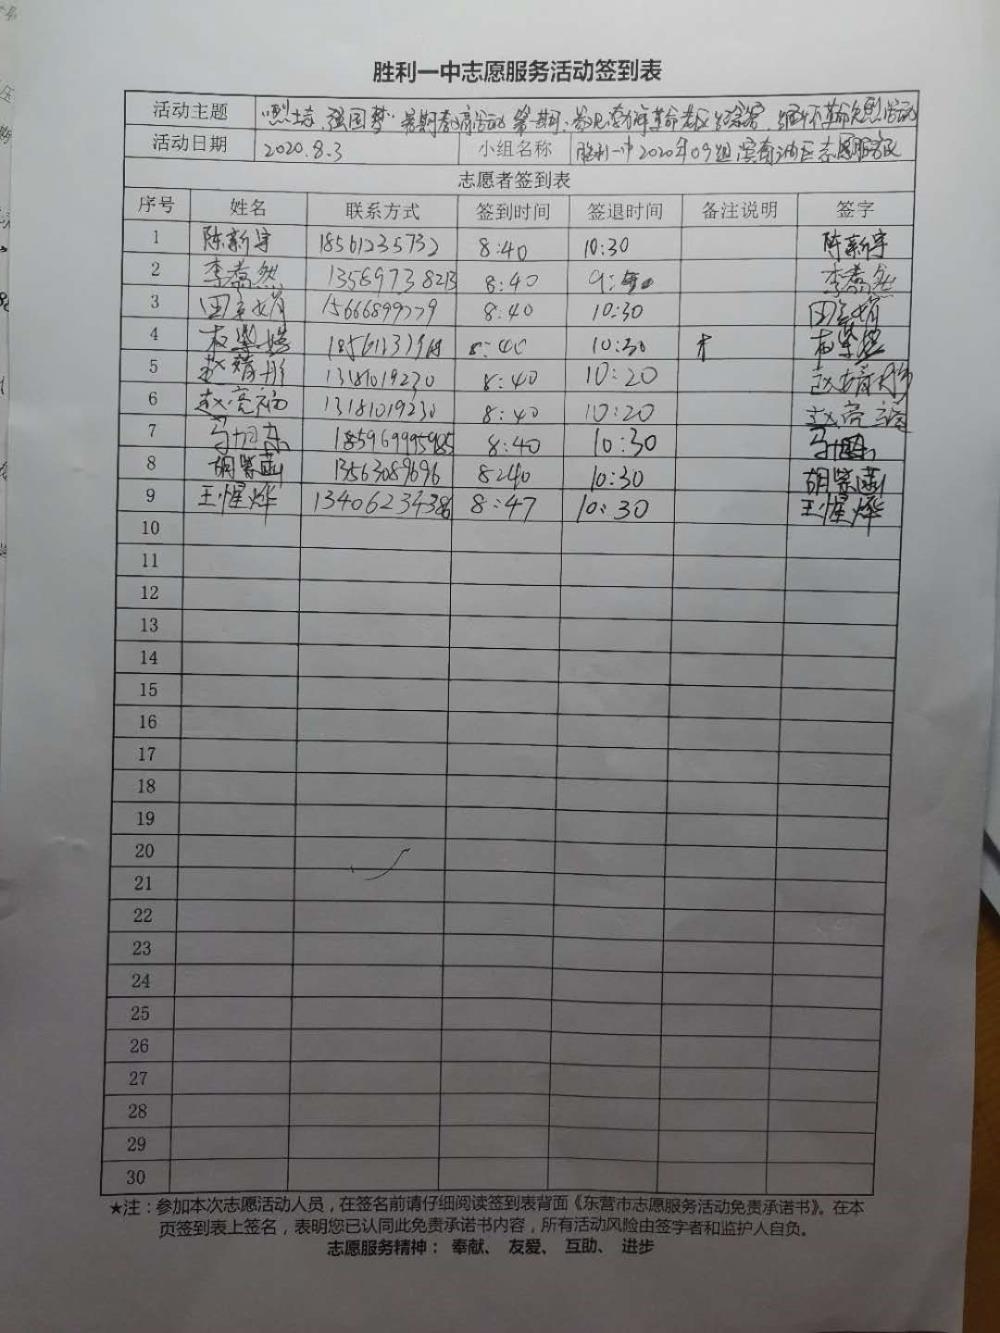 胜利一中志愿服务活动签到表
活动主题 强国梦 暑期 活动
活动日期 2020.8.3 小组名称 胜利一中2020年09组滨南油区志愿服务队
志愿者签到表
序号 姓名 联系方式 签到时间 签退时间 备注说明 签字
1 陈新宇 18561235732 8:40 10:30 陈新宇
2 李 然 8:40 李 然
3 田 15666899779 8:40 10:30 田
4 8:40 10:30
5 赵 13181019230 8:40 10:20 赵
6 赵亮 13181019230 8:40 10:20 赵亮
7 马旭东 8:40 10:30
8 胡紫菡 13563089696 8:40 10:30 胡紫菡
9 王惺烨 8:47 10:30 王惺烨
10
11
12
13
14
15
16
17
18
19
20
21
22
23
24
25
26
27
28
29
30
★注：参加本次志愿活动人员，在签名前请仔细阅读签到表背面《东营市志愿服务活动免责承诺书》。在本
页签到表上签名，表明您已认同此免责承诺书内容，所有活动风险由签字者和监护人自负。
志愿服务精神： 奉献、 友爱、 互助、 进步